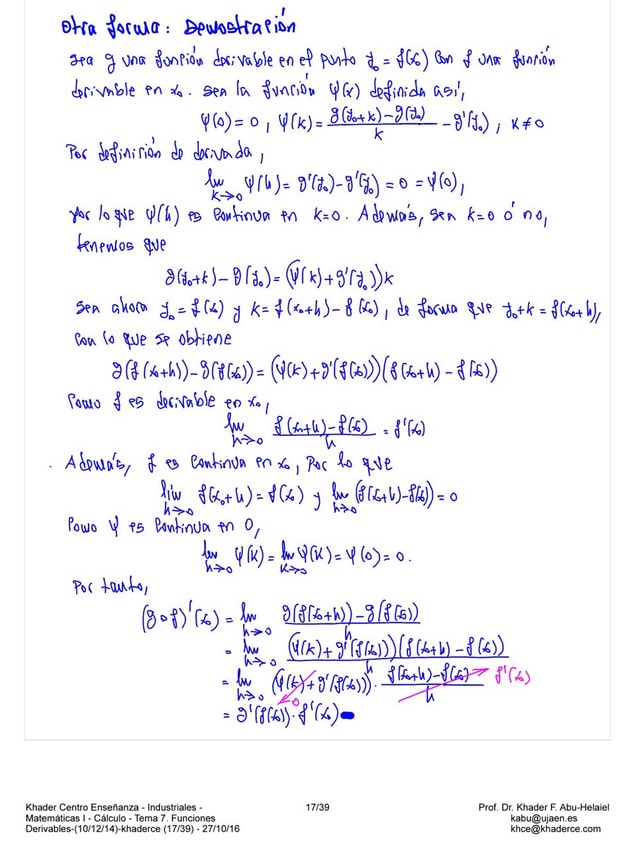 Otra forma: Demostración
Sea g una función derivable en el punto y₀ = f(x₀) con f una función
derivable en x₀. Sea la función ψ(x) definida así,
ψ(0) = 0, ψ(k) = (g(y₀+k) − g(y₀))/k − g'(y₀), k ≠ 0
Por definición de derivada,
lim_{k→0} ψ(h) = g'(y₀) − g'(y₀) = 0 = ψ(0),
por lo que ψ(h) es continua en k=0. Además, sea k=0 ó no,
tenemos que
g(y₀+k) − g(y₀) = (ψ(k) + g'(y₀))k
Sea ahora y₀ = f(x₀) y k = f(x₀+h) − f(x₀), de forma que y₀+k = f(x₀+h),
con lo que se obtiene
g(f(x₀+h)) − g(f(x₀)) = (ψ(k) + g'(f(x₀)))(f(x₀+h) − f(x₀))
Como f es derivable en x₀,
lim_{h→0} (f(x₀+h) − f(x₀))/h = f'(x₀)
. Además, f es continua en x₀, Por lo que
lim_{h→0} f(x₀+h) = f(x₀) y lim_{h→0} (f(x₀+h) − f(x₀)) = 0
Como ψ es continua en 0,
lim_{h→0} ψ(k) = lim_{k→0} ψ(k) = ψ(0) = 0.
Por tanto,
(g∘f)'(x₀) = lim_{h→0} (g(f(x₀+h)) − g(f(x₀)))/h
= lim_{h→0} (ψ(k) + g'(f(x₀)))(f(x₀+h) − f(x₀))/h
= lim_{h→0} (ψ(k) + g'(f(x₀))) · (f(x₀+h) − f(x₀))/h f'(x₀)
0
= g'(f(x₀)) · f'(x₀)
Khader Centro Enseñanza - Industriales -
Matemáticas I - Cálculo - Tema 7. Funciones
Derivables-(10/12/14)-khaderce (17/39) - 27/10/16
17/39
Prof. Dr. Khader F. Abu-Helaiel
kabu@ujaen.es
khce@khaderce.com